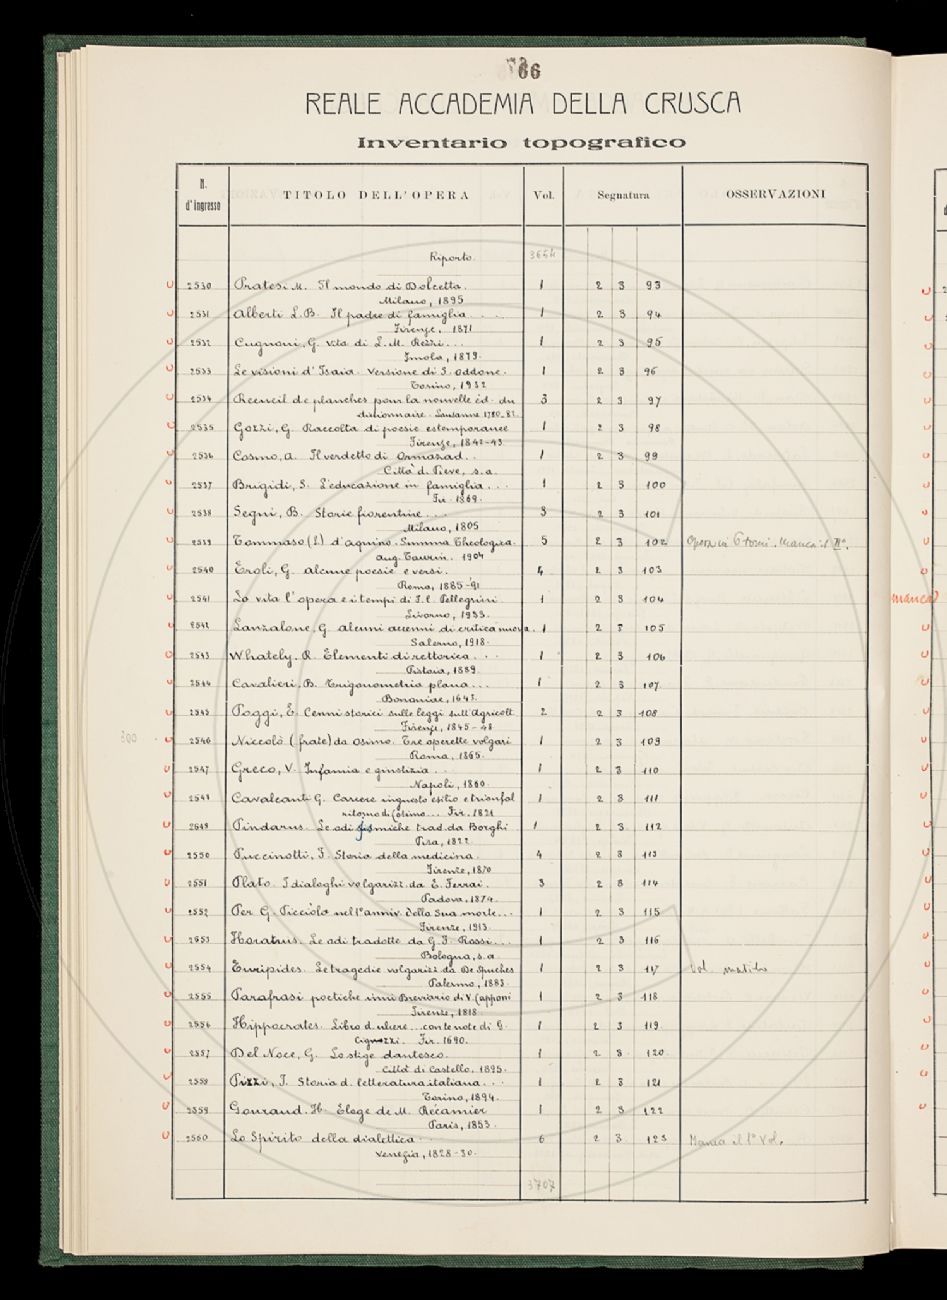 66
REALE ACCADEMIA DELLA CRUSCA
Inventario topografico
N. d'Ingresso TITOLO DELL'OPERA Vol. Segnatura OSSERVAZIONI
Riporto. 3654
2530 Pratesi M. Il mondo di Dolcetta. 1 2 3 93
Milano, 1895
2531 Alberti L.B. Il padre di famiglia . . . 1 2 3 94
Firenze, 1871
2532 Cugnoni, G. vita di L. M. Rezzi... 1 2 3 95
Imola, 1879.
2533 Le visioni d'Isaia. Versione di S. Oddone. 1 2 3 96
Torino, 1932
2534 Recueil de planches pour la nouvelle éd. du 3 2 3 97
dictionnaire. Lausanne 1780-82.
2535 Gozzi, G. Raccolta di poesie estemporanee 1 2 3 98
Firenze, 1842-43.
2536 Cosmo, A. Il verdetto di Ormazad. . 1 2 3 99
Città d. Pieve, s. a.
2537 Brigidi, S. L'educazione in famiglia... 1 2 3 100
Fir. 1869.
2538 Segni, B. Storie fiorentine... 3 2 3 101
Milano, 1805
2539 Tommaso (S.) d'Aquino. Summa Theologica. 5 2 3 102 Opera in 6 tomi. Manca il II°.
Aug. Taurin. 1904
2540 Eroli, G. alcune poesie e versi. 4 2 3 103
Roma, 1885-91
2541 La vita l'opera e i tempi di F. l. Pellegrini 1 2 3 104
Livorno, 1933.
2542 Lanzalone, G. alcuni accenni di critica nuova. 1 2 3 105
Salerno, 1918.
2543 Whately. R. Elementi di rettorica. . . 1 2 3 106
Pistoia, 1889.
2544 Cavalieri, B. Trigonometria plana... 1 2 3 107
Bononiae, 1643.
2545 Poggi, E. Cenni storici sulle leggi sull'Agricolt. 2 2 3 108
Firenze, 1845-48
300 2546 Niccolò (frate) da Osimo. Tre operette volgari 1 2 3 109
Roma, 1865.
2547 Greco, V. Infamia e giustizia. . . 1 2 3 110
Napoli, 1860.
2548 Cavalcanti G. Carcere ingiusto esilio e trionfal 1 2 3 111
ritorno di Cosimo... Fir. 1821
2549 Pindarus. Le odi istmiche trad. da Borghi 1 2 3 112
Pisa, 1822.
2550 Puccinotti, F. Storia della medicina. 4 2 3 113
Firenze, 1870
2551 Plato. I dialoghi volgarizz. da E. Ferrai. 3 2 3 114
Padova, 1874.
2552 Per G. Picciòla nel 1° anniv. della sua morte... 1 2 3 115
Firenze, 1913.
2553 Horatius. Le odi tradotte da G. F. Rossi... 1 2 3 116
Bologna, s. a.
2554 Euripides. Le tragedie volgarizz. da De Spuches 1 2 3 117 Vol. mutilo
Palermo, 1883.
2555 Parafrasi poetiche inni Breviario di V. Capponi 1 2 3 118
Firenze, 1818
2556 Hippocrates. Libro d. ulcere... con le note di G. 1 2 3 119
Cignozzi. Fir. 1690.
2557 Del Noce, G. Lo stige dantesco. 1 2 3 120
Città di Castello, 1895.
2558 Pizzi, I. Storia d. letteratura italiana... 1 2 3 121
Torino, 1894.
2559 Gouraud. H. Eloge de M. Récamier 1 2 3 122
Paris, 1853.
2560 Lo Spirito della dialettica . . 6 2 3 123 Manca il 1° Vol.
Venezia, 1828-30.
3707
manca